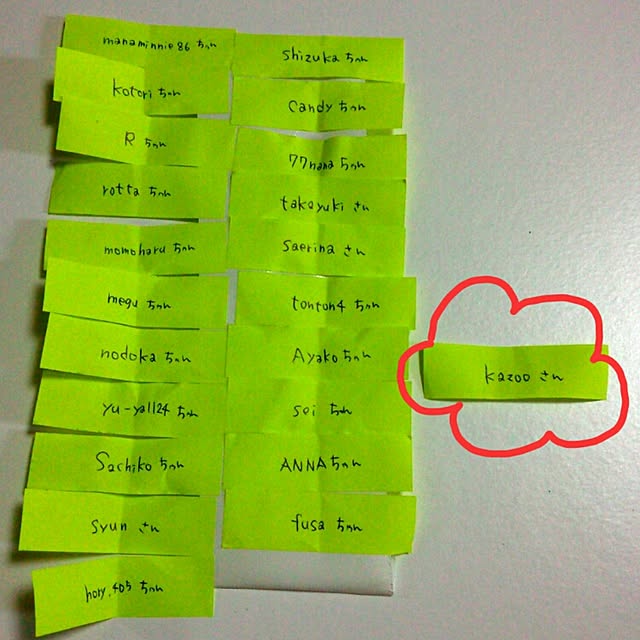 manaminnie86 ちゃん
kotori ちゃん
R ちゃん
rotta ちゃん
momoharu ちゃん
megu ちゃん
nodoka ちゃん
yu-yall24 ちゃん
Sachiko ちゃん
syun さん
hory.405 ちゃん
shizuka ちゃん
candy ちゃん
77nana ちゃん
takayuki さん
saerina さん
tonton4 ちゃん
Ayako ちゃん
sei ちゃん
ANNA ちゃん
fusa ちゃん
kazoo さん